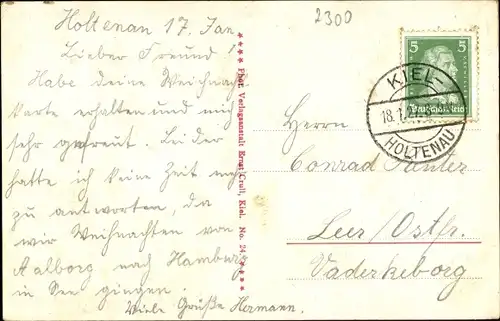 Holtenau 17. Jan.
Lieber Freund!
Habe deine Weihnachts
karte erhalten und mich
sehr gefreut. Leider
hatte ich keine Zeit mehr
zu antworten, da
wir Weihnachten von
Aalborg nach Hamburg
in See gingen.
Viele Grüße Hermann.
**** Phot. Verlagsanstalt Ernst Crull, Kiel. No. 24. ****
2300
5 5
Deutsches Reich
KIEL-
HOLTENAU
Herrn
Conrad
Leer/Ostfr.
Vaderkeborg